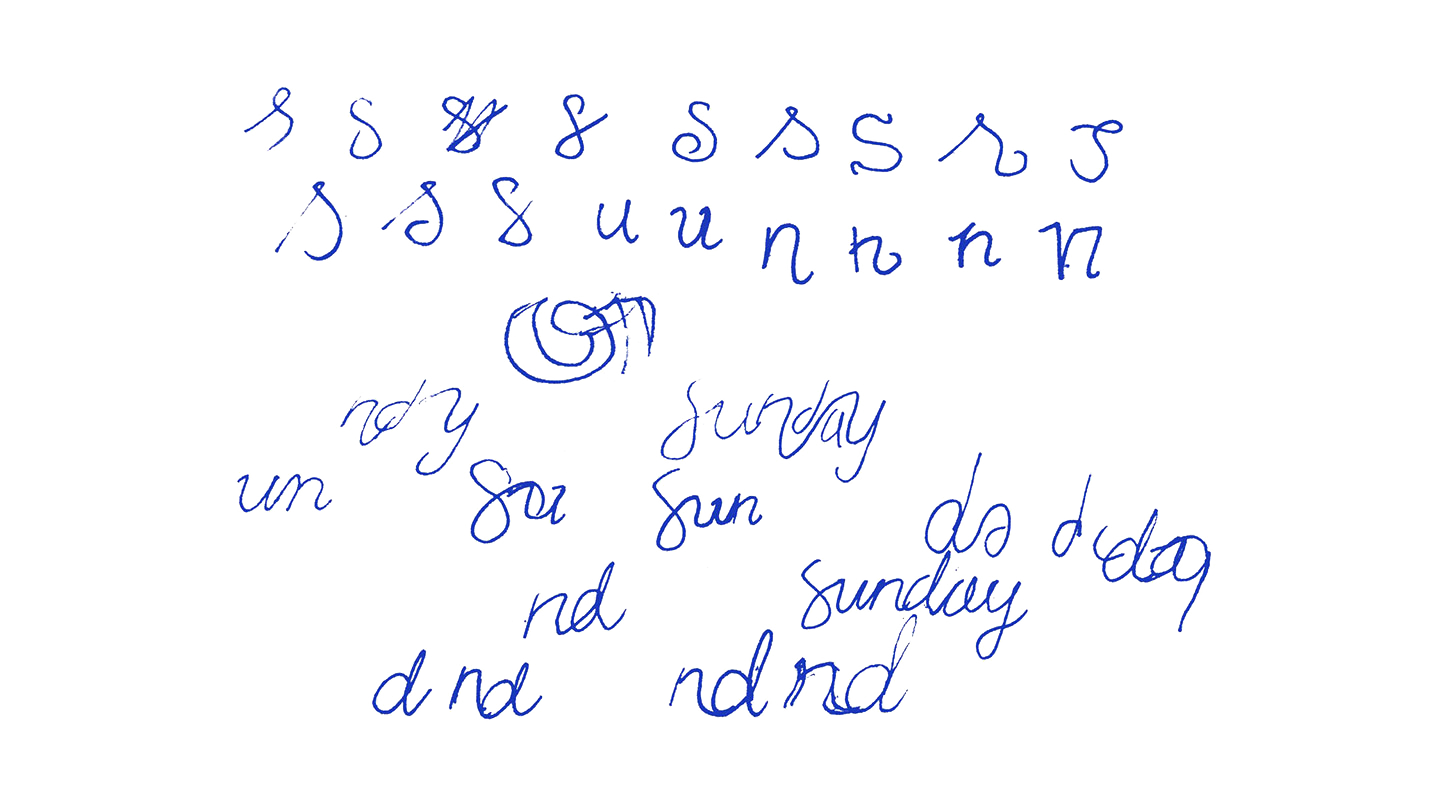 s s s s s s s s
s s s u u n n n n
ndy sunday
un su sun da d day
nd sunday
d nd nd nd